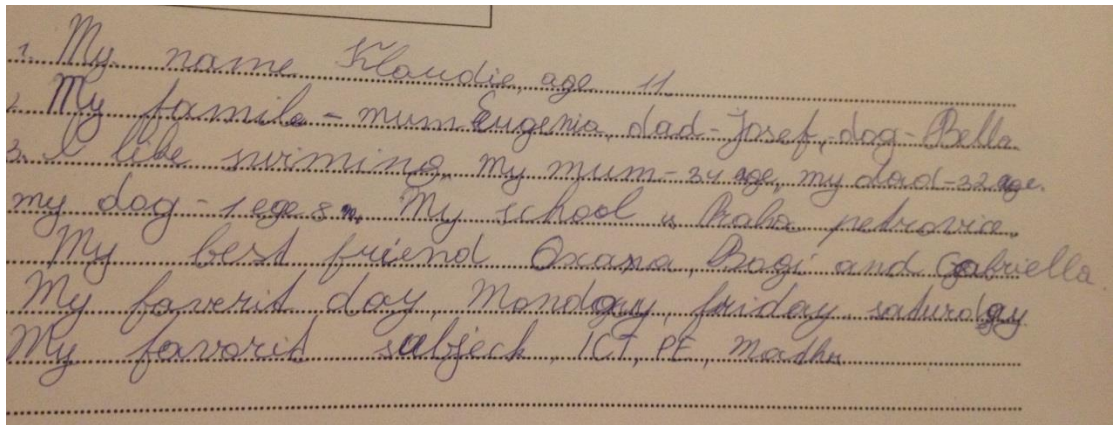 1. My name Klaudie, age 11.
2. My famile - mum Eugenia, dad - Josef, dog - Bella.
3. I like swiming. My mum - 34 age, my dad - 32 age.
my dog - 1 ege 8 m. My school Praha petrovice.
My best friend Oxana, Bogi and Gabriella.
My faverit day, Monday, friday, saturday
My favorit subjeck, ICT, PE, Madhu